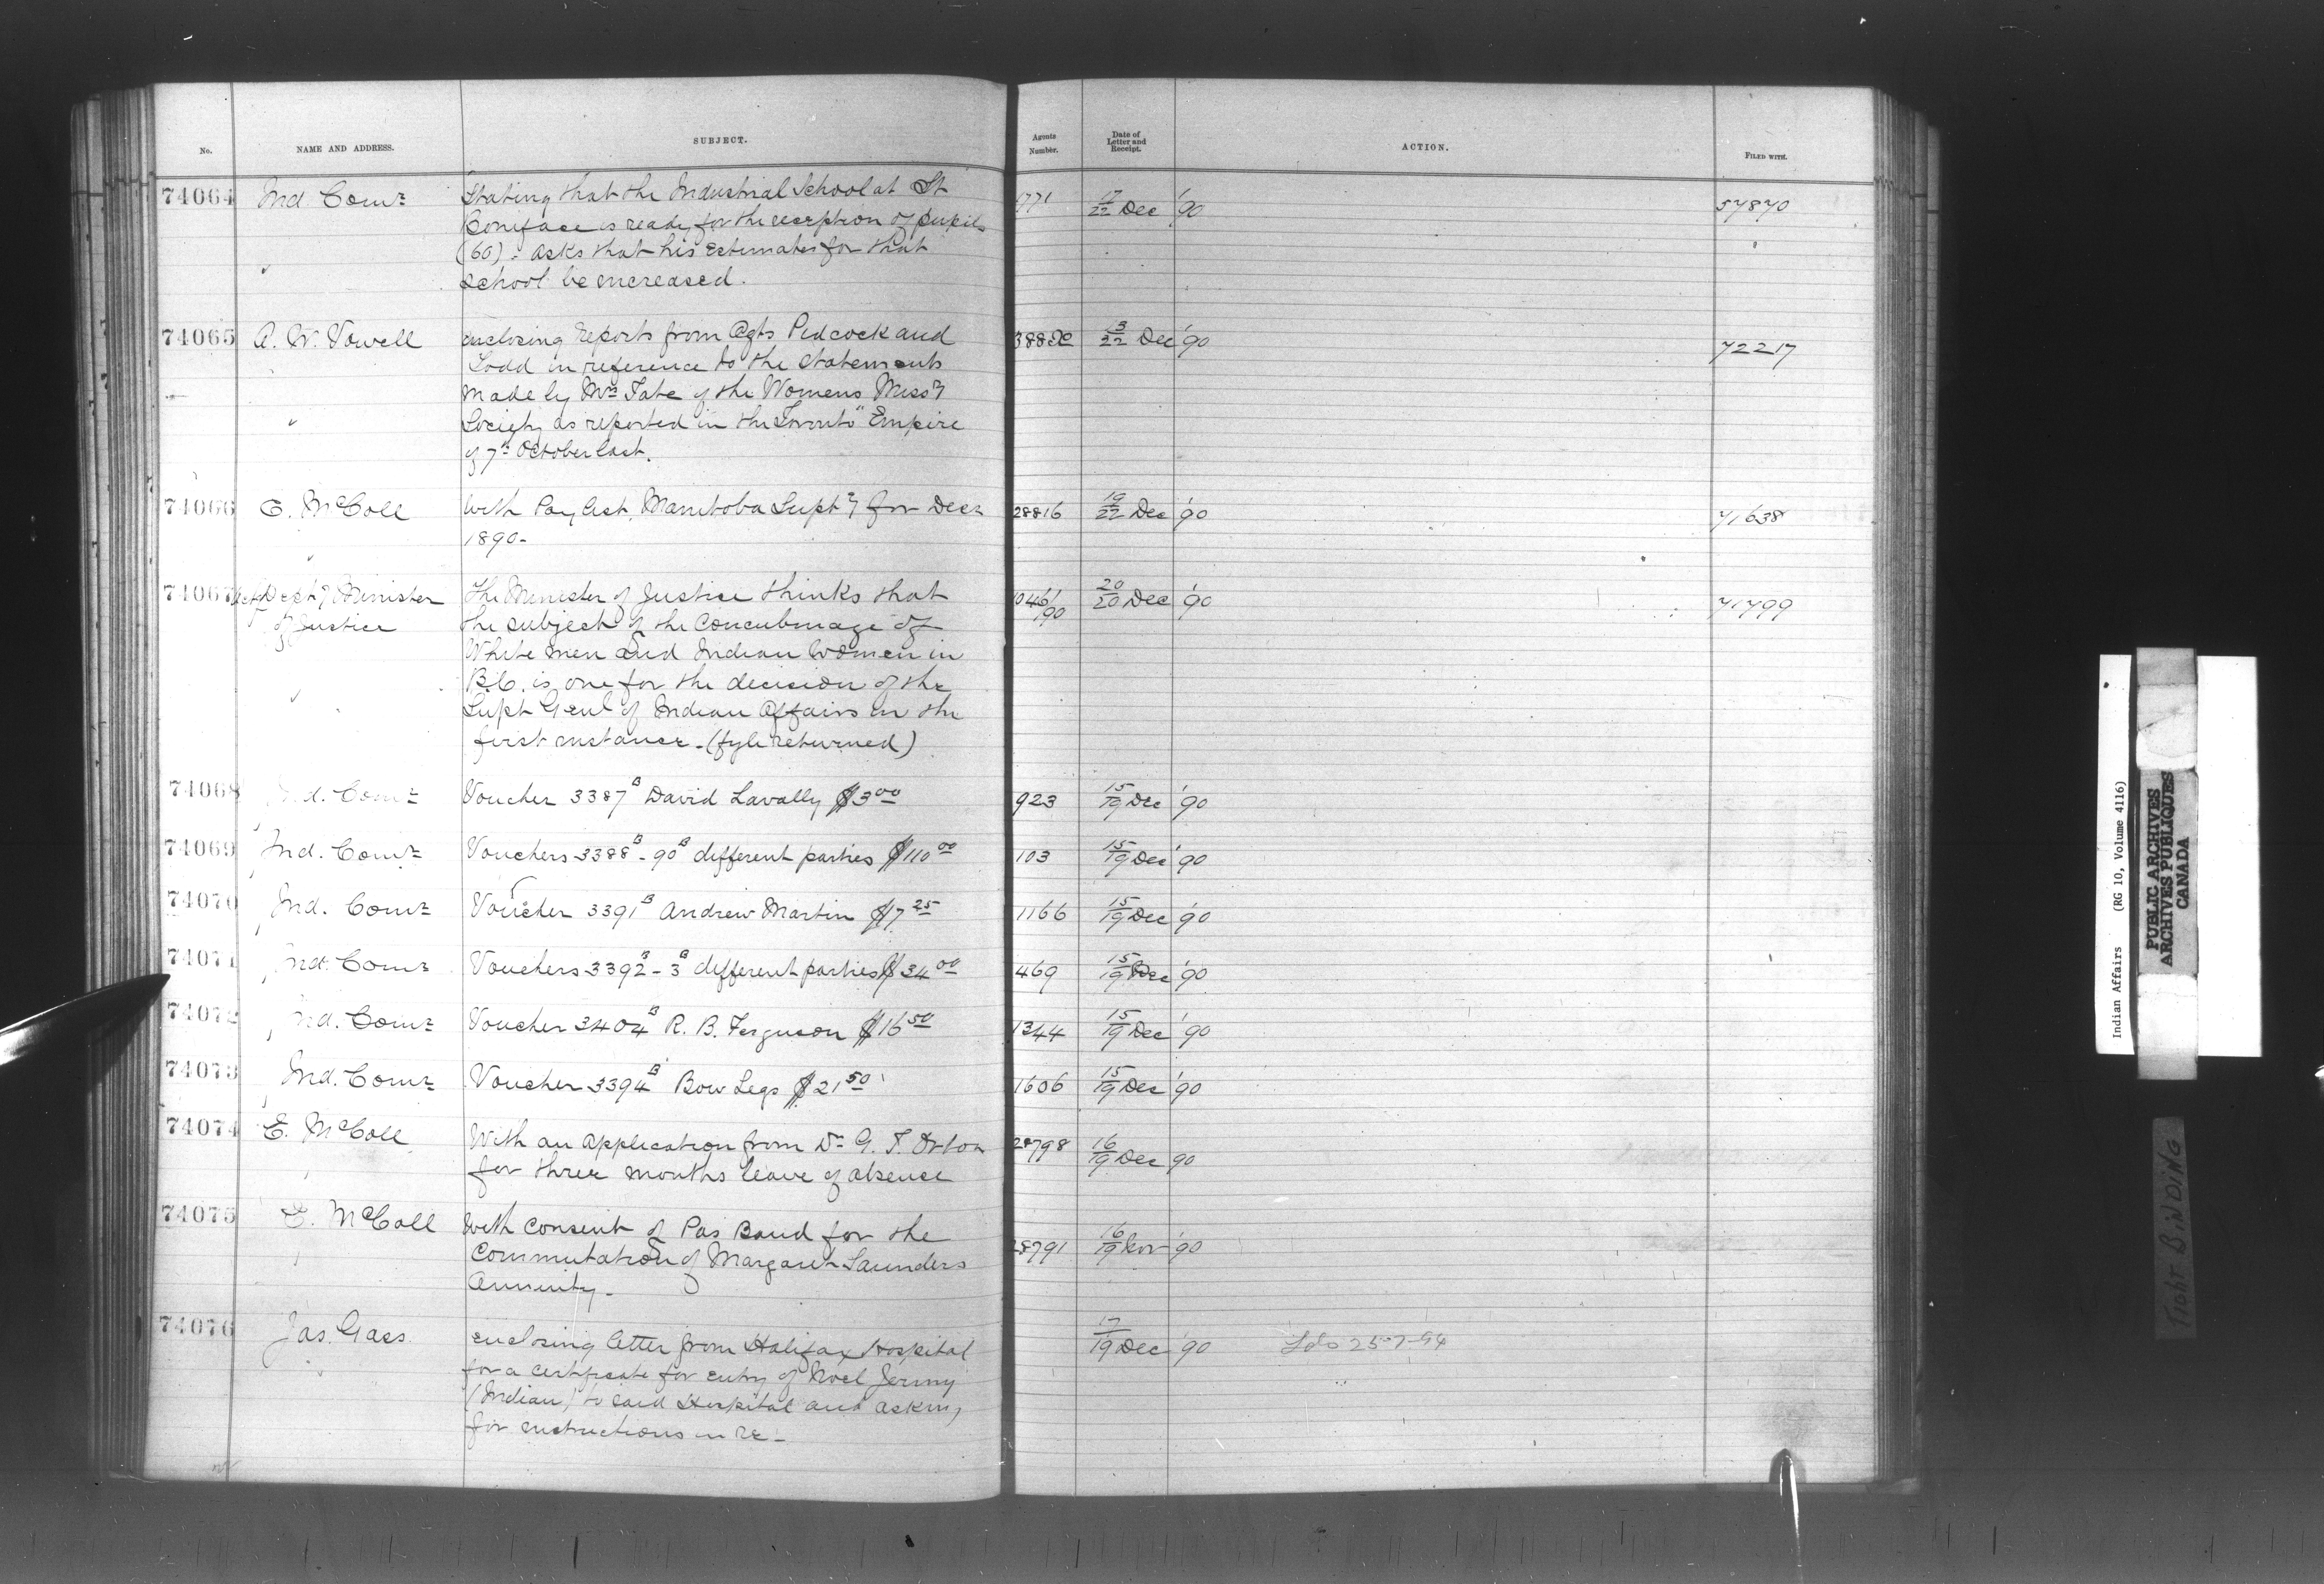 No. NAME AND ADDRESS. SUBJECT. Agents Number. Date of Letter and Receipt. ACTION. FILED WITH.
74064 Ind. Comr Stating that the Industrial School at St 1771 17/22 Dec '90 57870
Boniface is ready for the reception of pupils
(60) : asks that his estimates for that
School be increased.
74065 A. W. Vowell enclosing reports from Agts Pidcock and 388 13/22 Dec '90 72217
Todd in reference to the statements
made by Mrs Tate of the Womens Missy
Society as reported in the Toronto "Empire
of 7th October last.
74066 E. McColl With Pay list, Manitoba Supty for Decr 28816 19/22 Dec '90 71638
1890-
74067 Depty Minister of Justice The Minister of Justice thinks that 1046/90 20/20 Dec '90 71799
the subject of the concubinage of
White men and Indian Women in
B.C. is one for the decision of the
Supt Genl of Indian Affairs in the
first instance - (fyle returned)
74068 Ind. Comr Voucher 3387B David Lavally $3 00 923 15/19 Dec '90
74069 Ind. Comr Vouchers 3388B - 90B different parties $110 00 103 15/19 Dec '90
74070 Ind. Comr Voucher 3391B Andrew Martin $7 25 1166 15/19 Dec '90
74071 Ind. Comr Vouchers 3392B - 3B different parties $34 00 469 15/19 Dec '90
74072 Ind. Comr Voucher 3404B R. B. Ferguson $16 50 1344 15/19 Dec '90
74073 Ind. Comr Voucher 3394B Bow Legs $21 50 1606 15/19 Dec '90
74074 E. McColl With an application from Dr G. T. Orton 28798 16/19 Dec 90
for three months leave of absence
74075 E. McColl With consent of Pas Band for the
Commutation of Margaret Saunders 28791 16/19 Nov '90
Annuity -
74076 Jas. Gass enclosing letter from Halifax Hospital 17/19 Dec '90 25-7-94
for a certificate for entry of Noel Jermy
(Indian) to said Hospital and asking
for instructions in re -
Indian Affairs (RG 10, Volume 4116)
PUBLIC ARCHIVES
ARCHIVES PUBLIQUES
CANADA
TIGHT BINDING